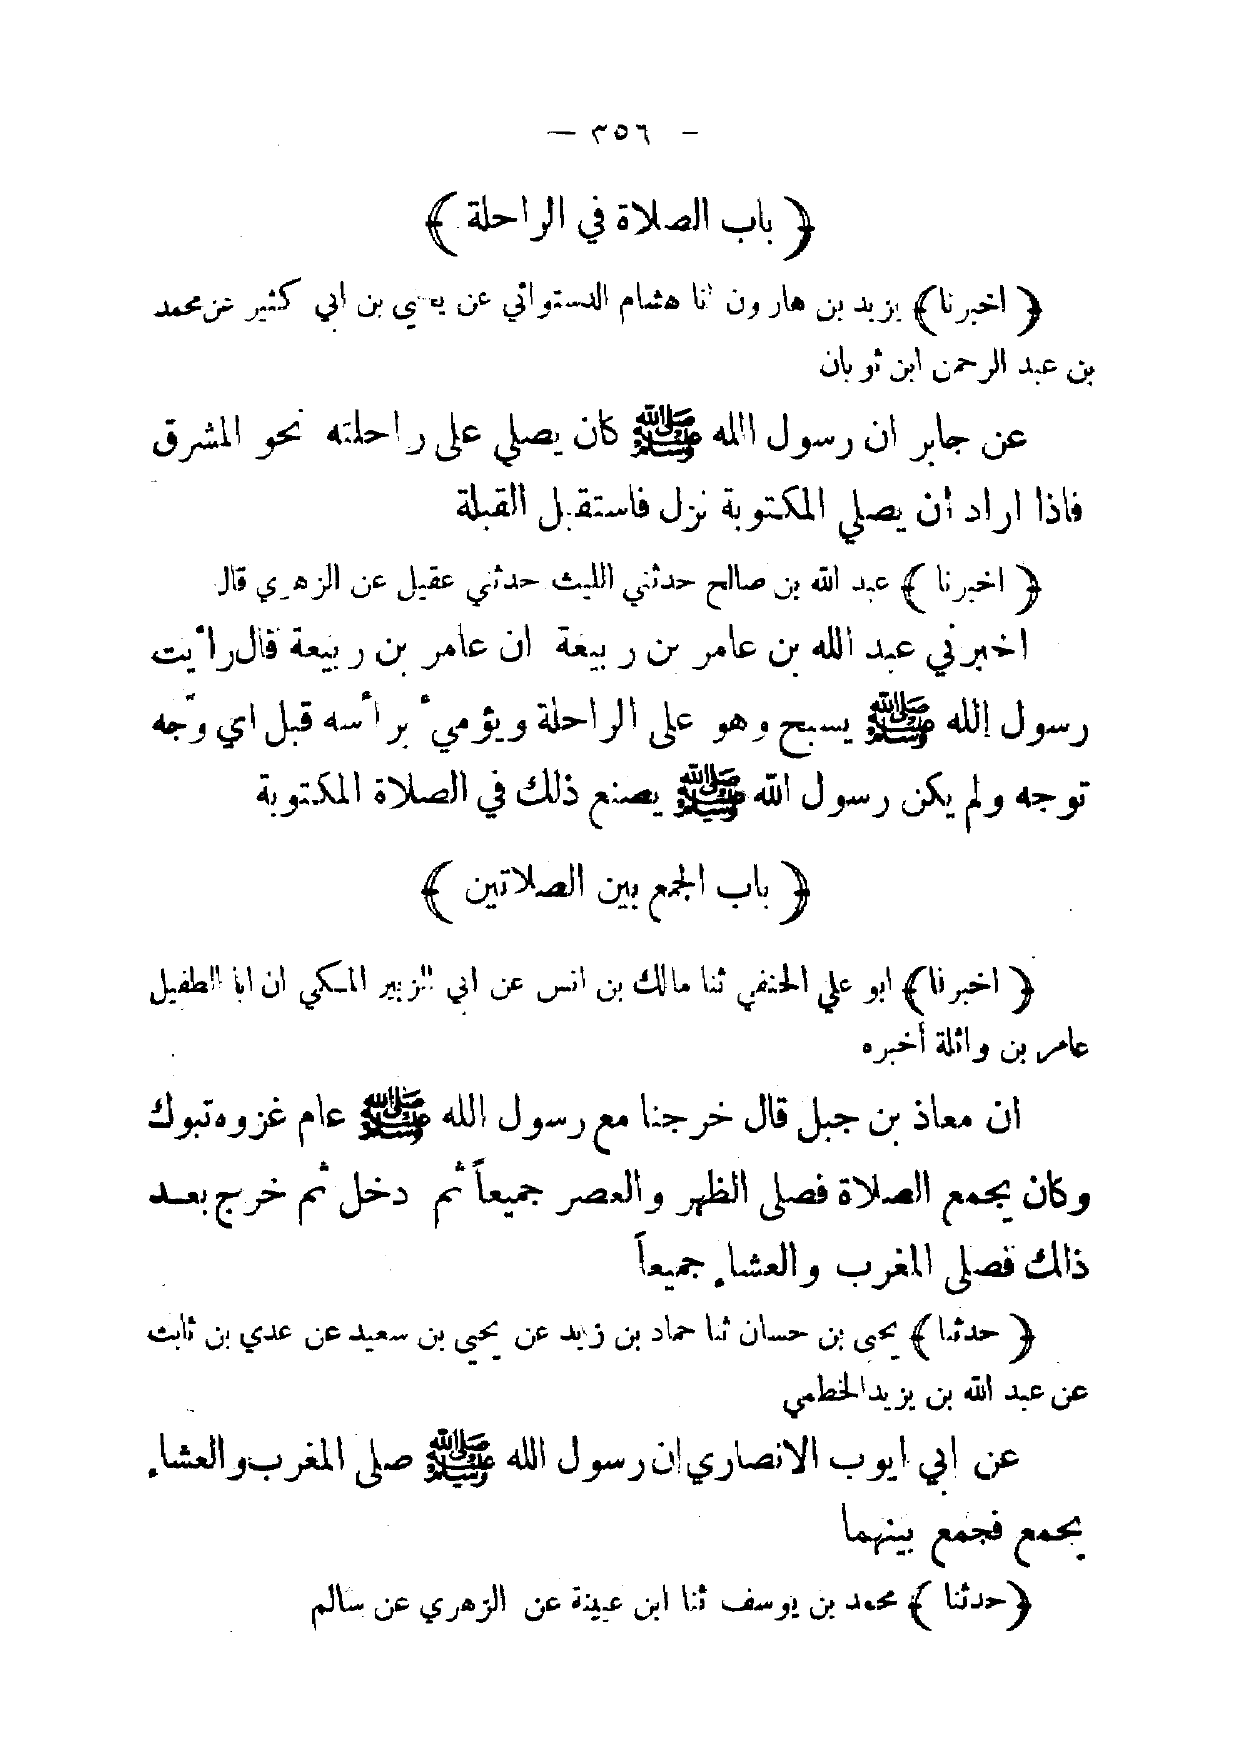 — ٣٥٦ —
﴿ باب الصلاة في الراحلة ﴾
﴿ اخبرنا ﴾ يزيد بن هارون انا هشام الدستوائي عن يحيى بن ابي كثير عن محمد
بن عبد الرحمن ابن ثوبان
عن جابر ان رسول الله ﷺ كان يصلي على راحلته نحو المشرق
فاذا اراد أن يصلي المكتوبة نزل فاستقبل القبلة
﴿ اخبرنا ﴾ عبد الله بن صالح حدثني الليث حدثني عقيل عن الزهري قال
اخبرني عبد الله بن عامر بن ربيعة ان عامر بن ربيعة قال رأيت
رسول الله ﷺ يسبح وهو على الراحلة ويؤميء برأسه قبل اي وجه
توجه ولم يكن رسول الله ﷺ يصنع ذلك في الصلاة المكتوبة
﴿ باب الجمع بين الصلاتين ﴾
﴿ اخبرنا ﴾ ابو علي الحنفي ثنا مالك بن انس عن ابي الزبير المكي ان ابا الطفيل
عامر بن واثلة أخبره
ان معاذ بن جبل قال خرجنا مع رسول الله ﷺ عام غزوه تبوك
وكان يجمع الصلاة فصلى الظهر والعصر جميعاً ثم دخل ثم خرج بعد
ذلك فصلى المغرب والعشاء جميعاً
﴿ حدثنا ﴾ يحيى بن حسان ثنا حماد بن زيد عن يحيى بن سعيد عن عدي بن ثابت
عن عبد الله بن يزيد الخطمي
عن ابي ايوب الانصاري ان رسول الله ﷺ صلى المغرب والعشاء
يجمع فجمع بينهما
﴿ حدثنا ﴾ محمد بن يوسف ثنا ابن عيينة عن الزهري عن سالم